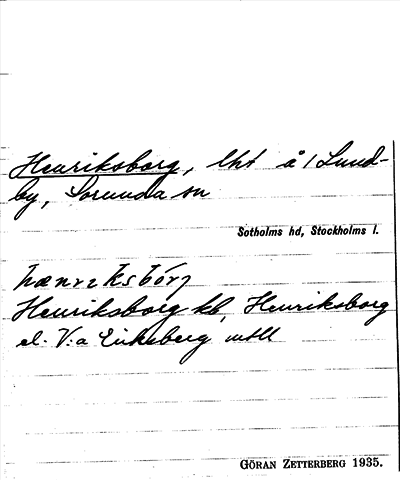 Henriksborg, lht å / Lund-
by, Sorunda sn
Sotholms hd, Stockholms l.
Henriksborg kb, Henriksborg
el. V:a Eriksberg
GÖRAN ZETTERBERG 1935.